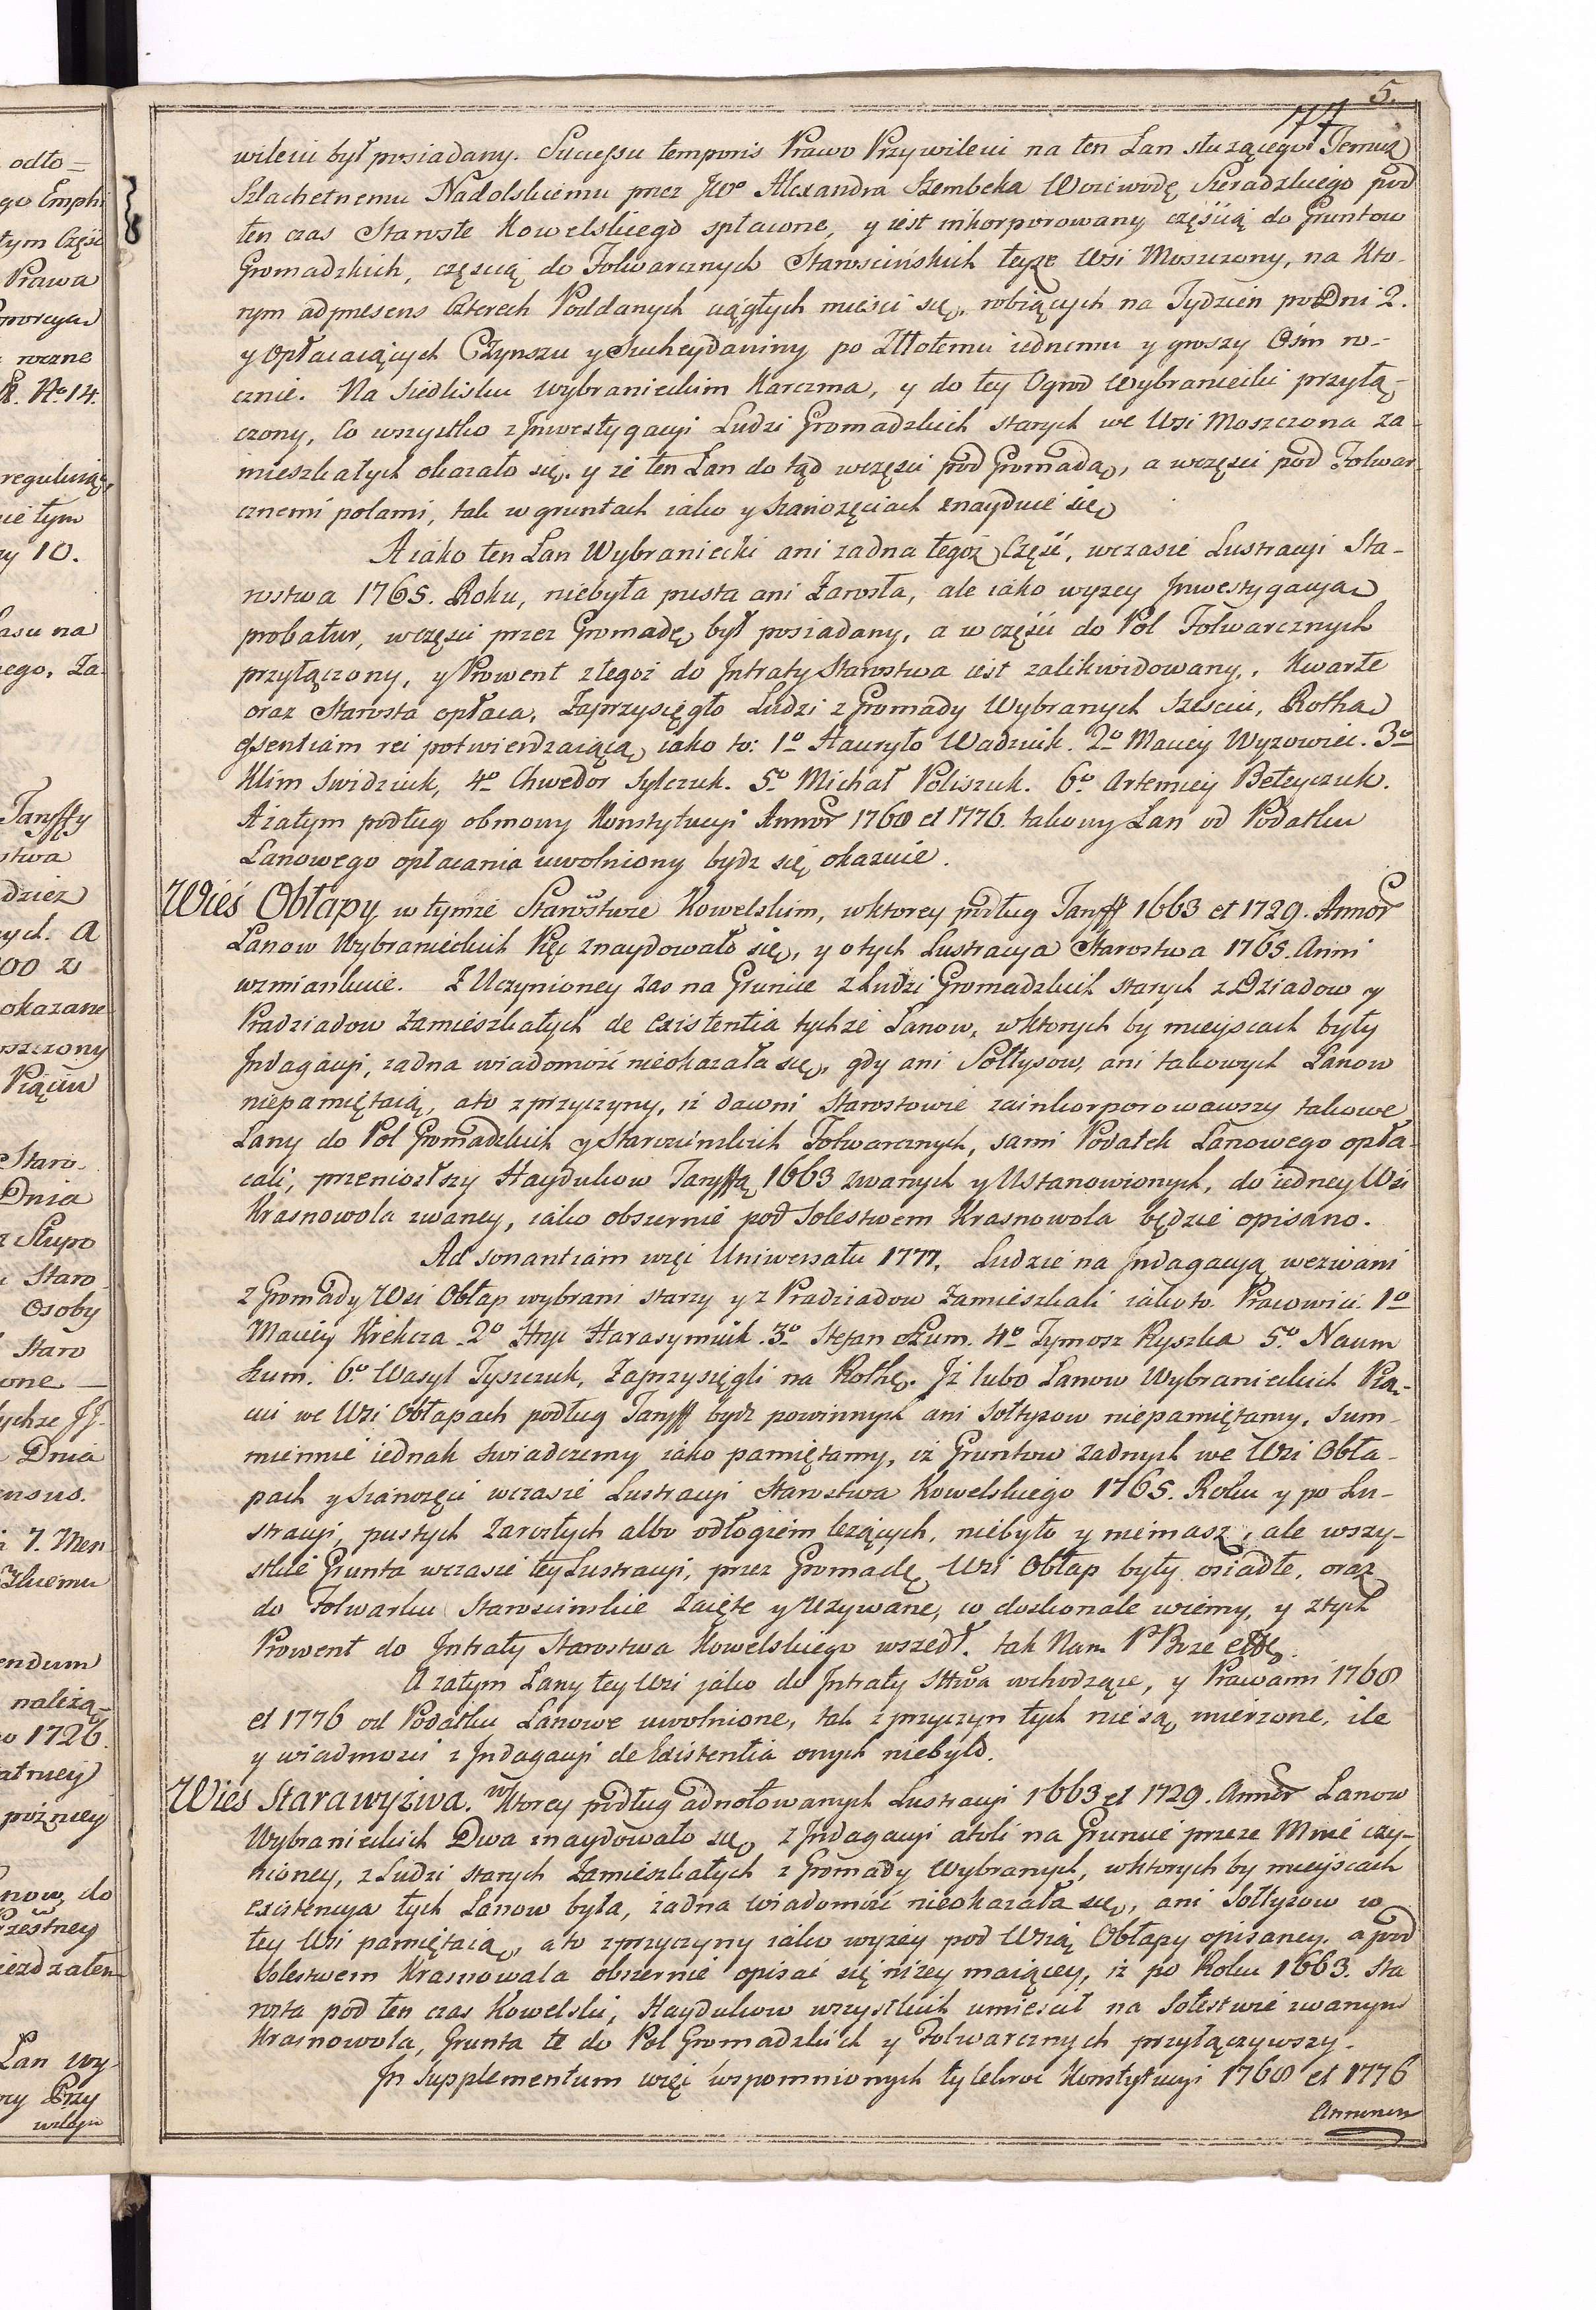 5.
177
wileiu był posiadany. Successu temporis Prawo Przywileiu na ten Łan służącego Temuż
Szlachetnemu Nadolskiemu przez JWo Alexandra Szembeka Woiewodę Sieradzkiego pod
ten czas Starostę Kowelskiego spłacone, y iest inkorporowany częścią do Gruntow
Gromadzkich, częścią do Folwarcznych Starościńskich teyże Wsi Moszczony, na Kto-
rym ad presens Czterech Poddanych ciągłych mieści się, robiących na Tydzien po Dni 2.
y opłacaiących Czynszu y Suchey daniny po Złłotemu iednemu y groszy Ośm ro-
cznie. Na Siedlisku wybranieckim Karczma, y do tey Ogrod Wybraniecki przyłą-
czony, Co wszystko z Jnwestygacyi Ludzi Gromadzkich starych we Wsi Moszczona za-
mieszkałych okazało się. y że ten Łan do tąd wczęsci pod Gromadą, a wczęsci pod Folwar-
cznemi polami, tak w gruntach iako y sianożęciach znayduie się
A iako ten Łan Wybraniecki ani żadna tegoż Część, wczasie Lustracyi Sta-
rostwa 1765. Roku, niebyła pusta ani Zarosła, ale iako wyżey Jnwestygacya
probatur, wczęsci przez Gromadę był posiadany, a w części do Pol Folwarcznych
przyłączony, y Prowent ztegoż do Jntraty Starostwa iest zalikwidowany, Kwartę
oraz Starosta opłaca, Zaprzysięgło Ludzi z Gromady Wybranych Sześciu, Rotha
essentiam rei potwierdzaiącą, iako to: 1o Hauryło Wadziuk. 2o Maciey Wyzowiec. 3o
Klim Swidziuk, 4o Chwedor Sylczuk. 5o Michał Poliszuk. 6o Artemiey Beteyczuk.
A zatym podług obmowy Konstytucyi Annor 1768 et 1776. takowy Łan od Podatku
Łanowego opłacania uwolniony bydz się okazuie.
Wieś Obłapy w tymże Starostwie Kowelskim, wktorey podług Taryff 1663 et 1729. Annor
Łanow Wybranieckich Pięć znaydowało się, y o tych Lustracya Starostwa 1765. Anni
wzmiankuie. Z Uczynioney zas na Gruncie z Ludzi Gromadzkich starych z Dziadow y
Pradziadow zamieszkałych de Existentia tychże Łanow, wktorych by mieyscach były
Jndagacyi, żadna wiadomość nieokazała się, gdy ani Sołtysow, ani takowych Łanow
niepamiętaią, ato z przyczyny, iż dawni Starostowie zainkorporowawszy takowe
Łany do Pol Gromadzkich y Starościnskich Folwarcznych, sami Podatek Łanowego opła-
cali, przeniozłszy Haydukow Taryffą 1663 zwanych y Ustanowionych, do iedney Wsi
Krasnowola zwaney, iako obszernie pod Solestwem Krasnowola będzie opisano.
Ad sonantiam więc Uniwersału 1777, Ludzie na Jndagacyą wezwani
z Gromady Wsi Obłap wybrani starzy y z Pradziadow Zamieszkali iako to. Pracowici 1o
Maciey Krekcza 2o Hryc Harasymiuk. 3o Stefan Szum. 4o Tymosz Ryszka 5o Naum
Szum. 6o Wasyl Tyszczuk, Zaprzysięgli na Rothę. Jż lubo Łanow Wybranieckich Pią-
ciu we Wsi Obłapach podług Taryff bydz powinnych ani Sołtysow niepamiętamy, Sum-
miennie iednak swiadczemy iako pamiętamy, iż Gruntow żadnych we Wsi Obła-
pach y Sianożęci wczasie Lustracyi Starostwa Kowelskiego 1765. Roku y po Lu-
stracyi, pustych zarosłych albo odłogiem leżących, niebyło y niemasz, ale wszy-
stkie Grunta wczasie tey Lustracyi, przez Gromadę Wsi Obłap były osiadłe, oraz
do Folwarku Starościnskie Zaięte y Używane, co doskonale wiemy, y ztych
Prowent do Jntraty Starostwa Kowelskiego wszedł. tak Nam P Boże etc.
A zatym Łany tey Wsi jako do Jntraty Sttwa wchodzące, y Prawami 1768
et 1776 od Podatku Łanowe uwolnione, tak z przyczyn tych nie są mierzone, ile
y wiadmosci z Jndagacyi de Existentia onych niebyło.
Wieś Starawyżwa. wktorey podług adnotowanych Lustracyi 1663 et 1729. Annor Łanow
Wybranieckich Dwa znaydowało się, z Jndagacyi atoli na Gruncie przeze Mnie czy-
nioney, z Ludzi starych Zamieszkałych z Gromady Wybranych, wktorych by mieyscach
existencya tych Łanow była, żadna wiadomość nieokazała się, ani Sołtysow w
tey Wsi pamiętaią, ato z przyczyny iako wyżey pod Wsią Obłapy opisaney. a pod
Solestwem Krasnowola obszernie opisać się niżey maiącey, iż po Roku 1663. Sta
rosta pod ten czas Kowelski, Haydukow wszystkich umieścił na Sołestwie zwanym
Krasnowola, Grunta te do Pol Gromadzkich y Folwarcznych przyłączywszy.
Jn Supplementum więc wspomnionych tylekroć Konstytucyi 1768 et 1776
Annorum